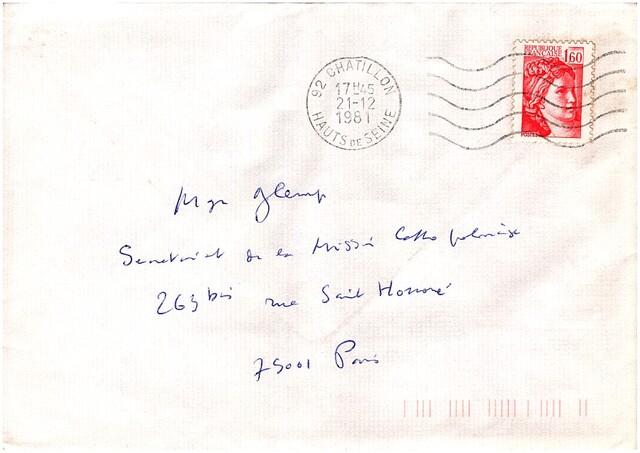 92 CHATILLON
17H45
21-12
1981
HAUTS DE SEINE
REPUBLIQUE
FRANCAISE
1,60
POSTES
Mgr Glemp
Secretariat de la Mission Catho polonaise
263 bis rue Saint Honoré
75001 Paris